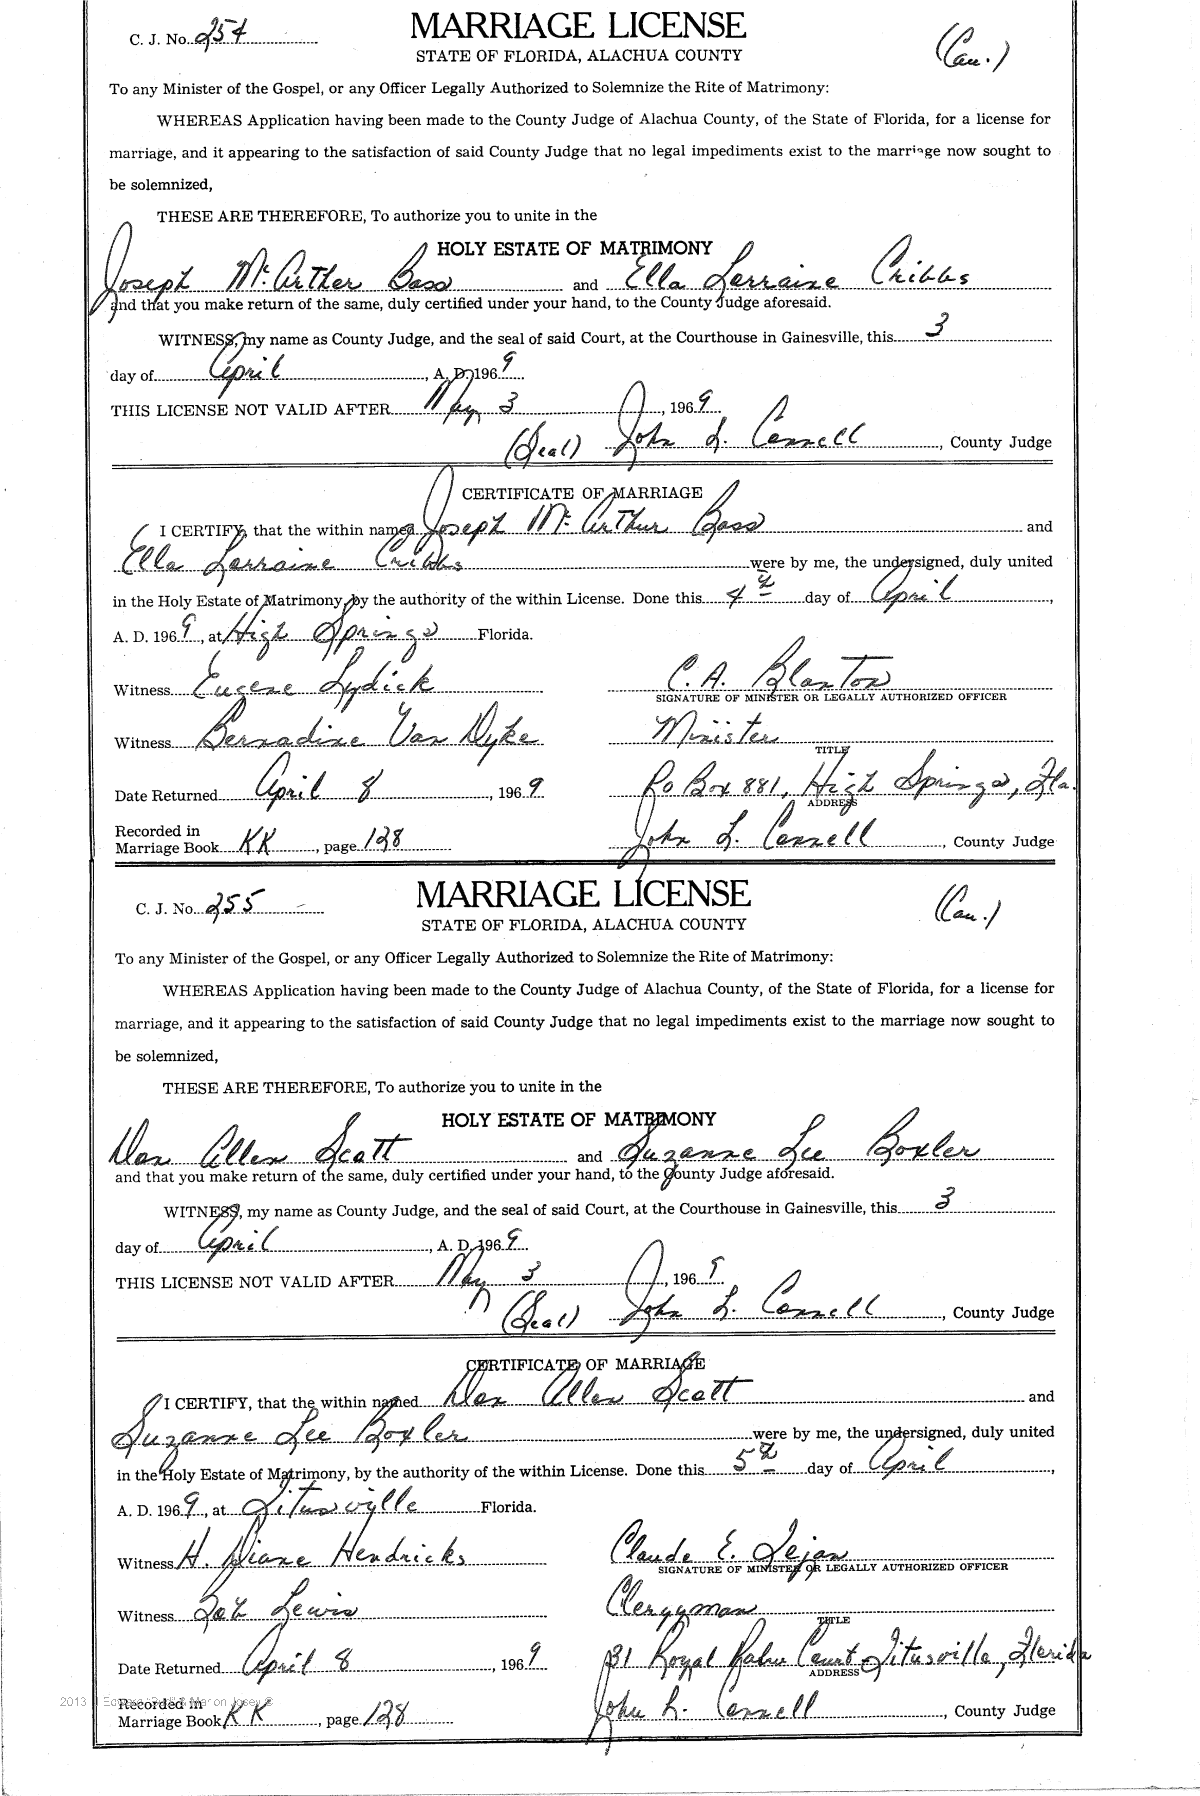 C. J. No. 254
MARRIAGE LICENSE
STATE OF FLORIDA, ALACHUA COUNTY
(Cau.)
To any Minister of the Gospel, or any Officer Legally Authorized to Solemnize the Rite of Matrimony:
WHEREAS Application having been made to the County Judge of Alachua County, of the State of Florida, for a license for
marriage, and it appearing to the satisfaction of said County Judge that no legal impediments exist to the marriage now sought to
be solemnized,
THESE ARE THEREFORE, To authorize you to unite in the
HOLY ESTATE OF MATRIMONY
Joseph McArther Bass and Ella Lorraine Cribbs
and that you make return of the same, duly certified under your hand, to the County Judge aforesaid.
WITNESS, my name as County Judge, and the seal of said Court, at the Courthouse in Gainesville, this 3
day of April, A. D. 1969
THIS LICENSE NOT VALID AFTER May 3, 1969
(Seal) John L. Connell, County Judge
CERTIFICATE OF MARRIAGE
I CERTIFY, that the within named Joseph McArthur Bass and
Ella Lorraine Cribbs were by me, the undersigned, duly united
in the Holy Estate of Matrimony, by the authority of the within License. Done this 4th day of April,
A. D. 1969, at High Springs Florida.
Witness Eugene Lydick C. A. Blanton
SIGNATURE OF MINISTER OR LEGALLY AUTHORIZED OFFICER
Witness Bernadine Van Dyke Minister
TITLE
Date Returned April 8, 1969 Po Box 881, High Springs, Fla.
ADDRESS
Recorded in
Marriage Book KK, page 128 John L. Connell, County Judge
C. J. No. 255
MARRIAGE LICENSE
STATE OF FLORIDA, ALACHUA COUNTY
(Cau.)
To any Minister of the Gospel, or any Officer Legally Authorized to Solemnize the Rite of Matrimony:
WHEREAS Application having been made to the County Judge of Alachua County, of the State of Florida, for a license for
marriage, and it appearing to the satisfaction of said County Judge that no legal impediments exist to the marriage now sought to
be solemnized,
THESE ARE THEREFORE, To authorize you to unite in the
HOLY ESTATE OF MATRIMONY
Dan Allen Scott and Suzanne Lee Boxler
and that you make return of the same, duly certified under your hand, to the County Judge aforesaid.
WITNESS, my name as County Judge, and the seal of said Court, at the Courthouse in Gainesville, this 3
day of April, A. D. 1969
THIS LICENSE NOT VALID AFTER May 3, 1969
(Seal) John L. Connell, County Judge
CERTIFICATE OF MARRIAGE
I CERTIFY, that the within named Dan Allen Scott and
Suzanne Lee Boxler were by me, the undersigned, duly united
in the Holy Estate of Matrimony, by the authority of the within License. Done this 5th day of April,
A. D. 1969, at Titusville Florida.
Witness H. Diane Hendricks Claude E.
SIGNATURE OF MINISTER OR LEGALLY AUTHORIZED OFFICER
Witness Lewis Clergyman
TITLE
Date Returned April 8, 1969 31 Royal Court Titusville, Florida
ADDRESS
2013
Recorded in
Marriage Book KK, page 128 John L. Connell, County Judge